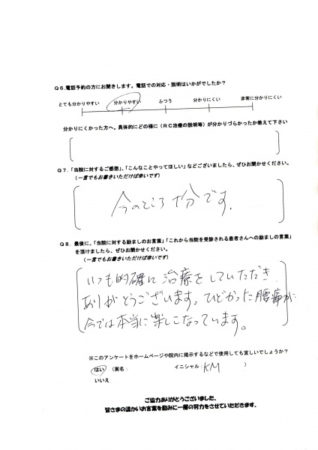 Q6.電話予約の方にお聞きします。電話での対応・説明はいかがでしたか？
とても分かりやすい 分かりやすい ふつう 分かりにくい 非常に分かりにくい
分かりにくかった方へ。具体的にどの様に（ＲＣ治療の説明等）が分かりづらかったか教えて下さい
Q7.「当院に対するご感想」、「こんなことやってほしい」などございましたら、ぜひお聞かせください。
（一言でもお書きいただければ幸いです）
今のところ十分です。
Q8.最後に、「当院に対する励ましのお言葉」「これから当院を受診される患者さんへの励ましの言葉」
を頂けましたら、ぜひお聞かせください。
（一言でもお書きいただければ幸いです）
いつも的確に治療をしていただき
ありがとうございます。ひどかった腰痛が
今では本当に楽しくなっています。
※このアンケートをホームページや院内に掲示するなどで使用しても宜しいでしょうか？
はい （実名 イニシャル KM ）
いいえ
ご協力ありがとうございました。
皆さまの温かいお言葉を励みに一層の努力をさせていただきます。